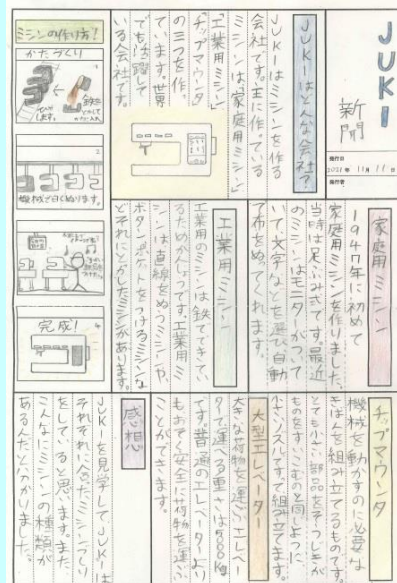 JUKI
新聞
発行日
2021年11月11日
発行者
JUKIはどんな会社?
JUKIはミシンを作る
会社です。主に作っている
ミシンは「家庭用ミシン」
「工業用ミシン」
「チップマウンタ」
の三つを作っ
ています。世界
でも活躍して
いる会社です。
ミシンの作り方!
かたづくり
鉄を
とかして
かたに入れ
ひや
します。
2
機械で白くぬります。
3
完成!
4
家庭用ミシン
1947年に初めて
家庭用ミシンを作りました。
当時は足ぶみ式です。最近
のミシンはモニターがつって
いて、文字などを選び自動
で布をぬってくれます。
工業用ミシン
工業用のミシンは鉄でできてい
るためがんじょうです。工業用ミ
シンは直線をぬうミシンや、
ボタン
をつけるミシンな
どそれにとかしたミシンがあります。
チップマウンタ
機械を動かすのに必要な
きばんを組み立てるものです。
とても小さい部品をそうじきが
ものをすいこむのと同じように
小さいノズルですって組み立てます。
大型エレベーター
大きな荷物を運ぶエレベー
ターで運べる重さは5000kg
です。普通のエレベーターより
もおそく安全に荷物を運ぶ
ことができます。
感想
JUKIを見学して、JUKIは
それぞれに合ったミシンづくり
をしていると思います。また
こんなにミシンの種類が
あるんだと分かりました。